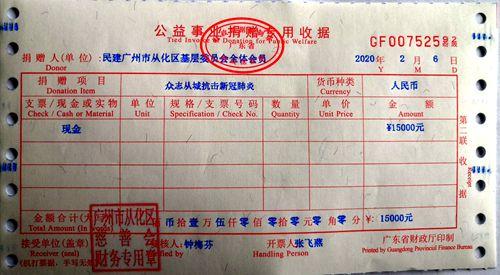 公益事业捐赠专用收据
Tied Invoice of Donation for Public Welfare
广东省
GF00752592
捐赠人(单位):民建广州市从化区基层委员会全体会员 2020年 2月 6日
Donor Y M D
捐赠项目 众志从城抗击新冠肺炎 货币种类 人民币
Donation Item Currency
支票/现金或实物 单位 规格/支票号码 数量 单价 金额
Check / Cash or Material Unit Specification / Check No. Quantity Unit Price Amount
现金 ¥15000元
第二联 收据
金额合计(大写) 币 拾壹万伍仟零佰零拾零元角零分 ¥: 15000元
Total Amount
接受单位(盖章) 复核人:钟梅芬 开票人:张飞燕 广东省财政厅印制
Receiver (seal) Verified by Handling Person Printed by Guangdong Provincial Finance Bureau
(机打票据,手写无效)
广州市从化区
慈善会
财务专用章